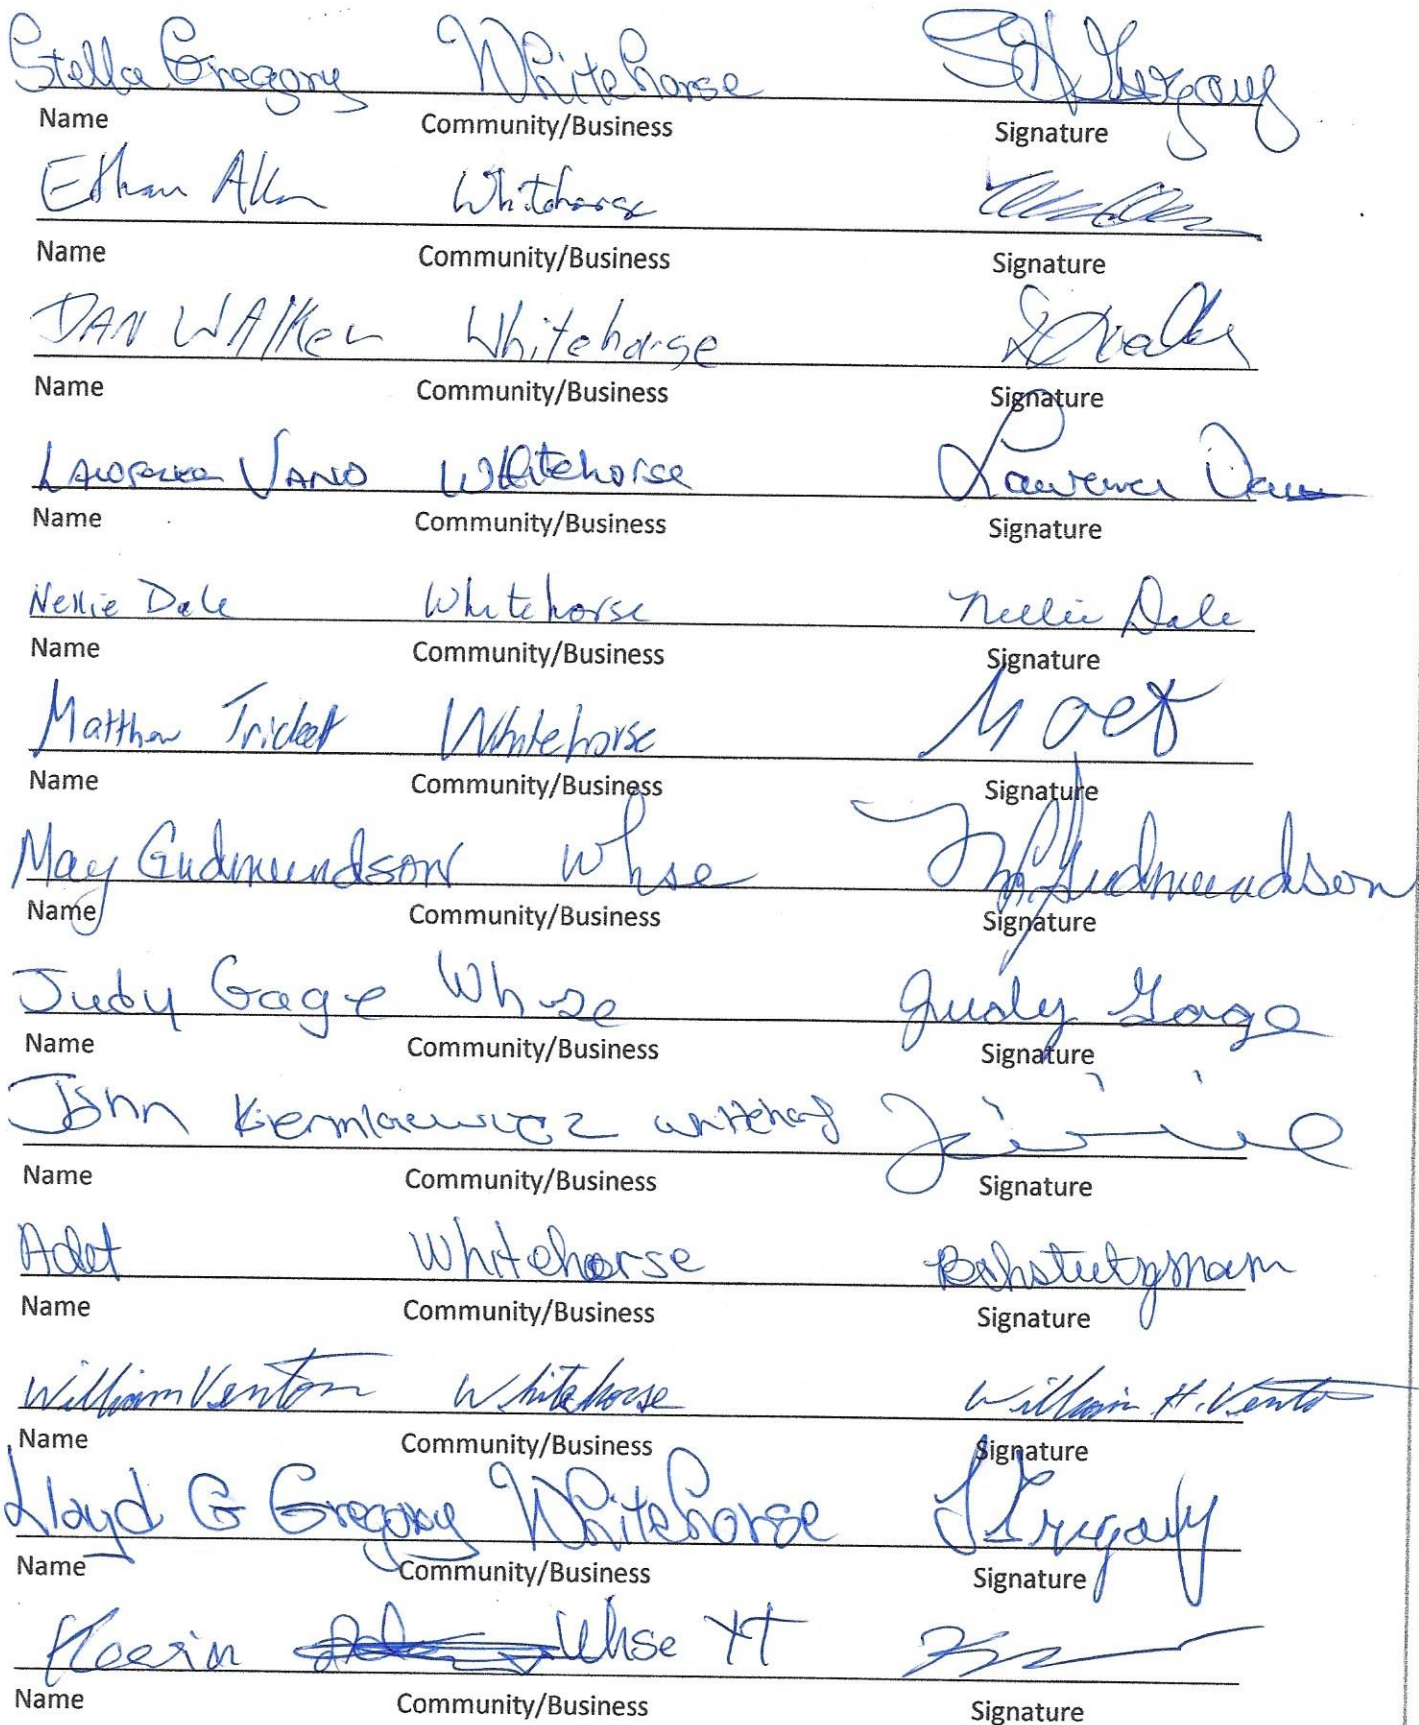 Stella Gregory Whitehorse S Gregory
Name Community/Business Signature
Ethan Allen Whitehorse
Name Community/Business Signature
DAN WAlKer Whitehorse
Name Community/Business Signature
VANO Whitehorse Lawrence
Name Community/Business Signature
Nellie Dale Whitehorse Nellie Dale
Name Community/Business Signature
Matthew Whitehorse
Name Community/Business Signature
May Gudmundson Whse M Gudmundson
Name Community/Business Signature
Judy Gage Whse Judy Gage
Name Community/Business Signature
John
Name Community/Business Signature
Whitehorse
Name Community/Business Signature
William Venton Whitehorse William H. Venton
Name Community/Business Signature
Lloyd G Gregory Whitehorse L Gregory
Name Community/Business Signature
Whse YT
Name Community/Business Signature